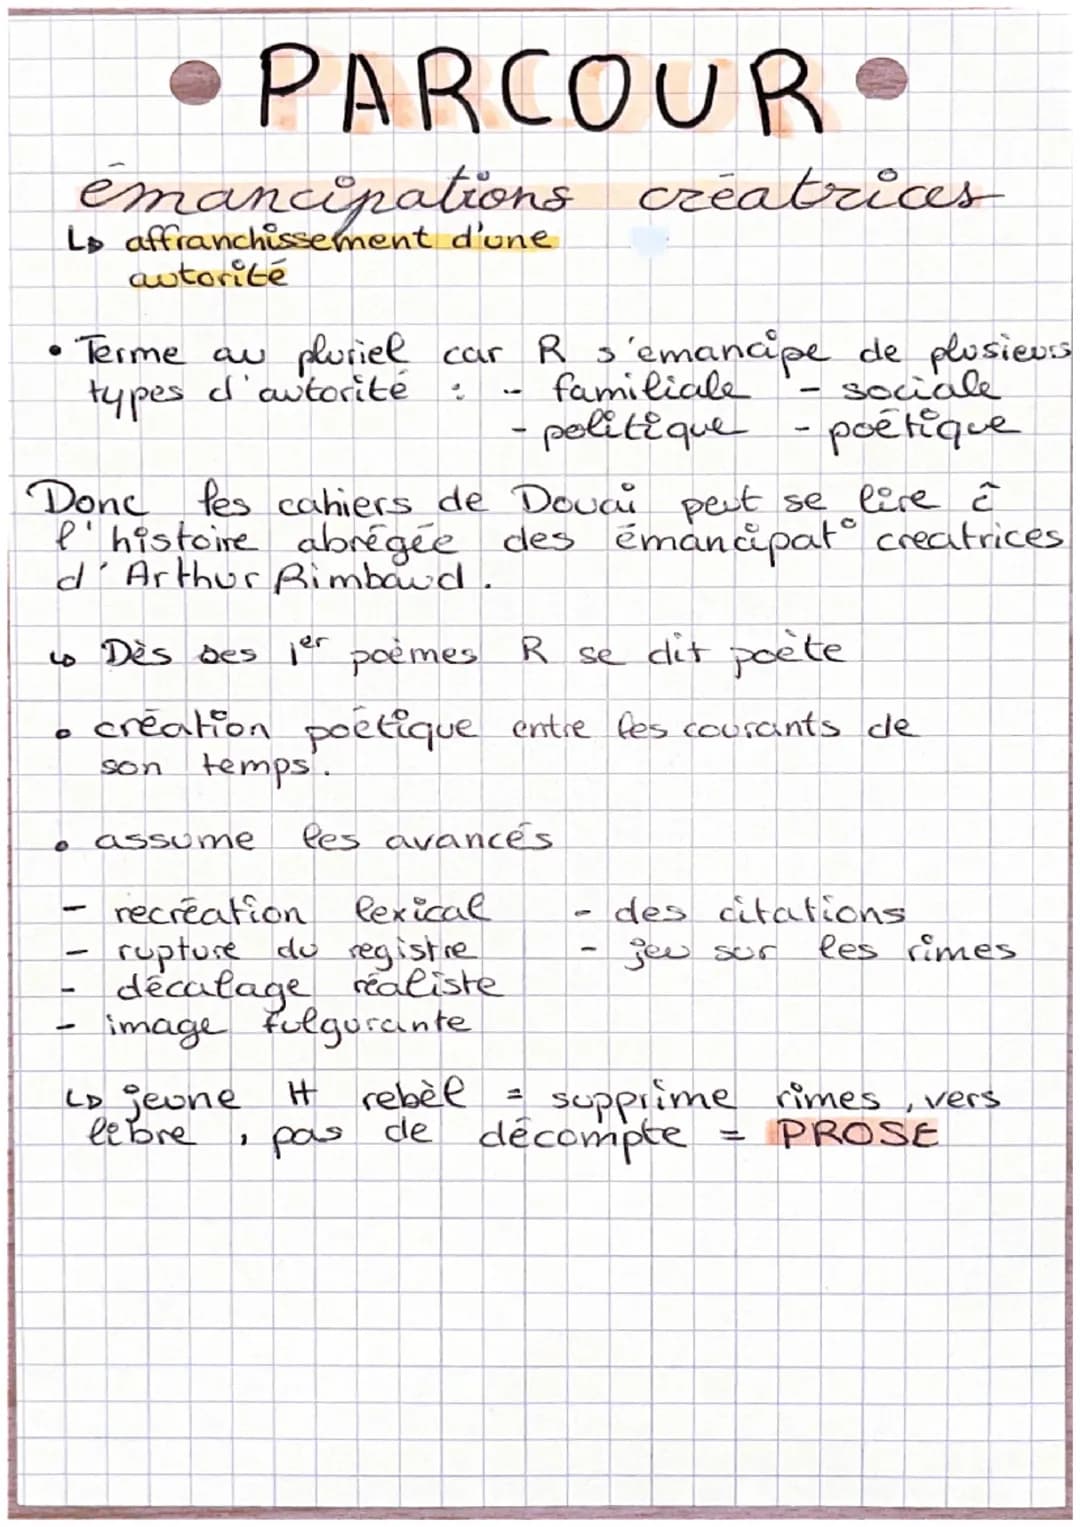 • PARCOUR •
émancipations créatrices
↳ affranchissement d'une
autorité
• Terme au pluriel car R s'émancipe de plusieurs
types d'autorité : - familiale - sociale
- politique - poétique
Donc les cahiers de Douai peut se lire ĉ
l'histoire abrégée des émancipat° creatrices
d'Arthur Rimbaud.
↳ Dès ses 1er poèmes R se dit poète
• création poétique entre les courants de
son temps.
• assume les avancés
- recréation lexical - des citations
- rupture du registre - jeu sur les rimes
- décalage réaliste
- image fulgurante
↳ jeune H rebèl = supprime rimes, vers
libre, pas de décompte = PROSE